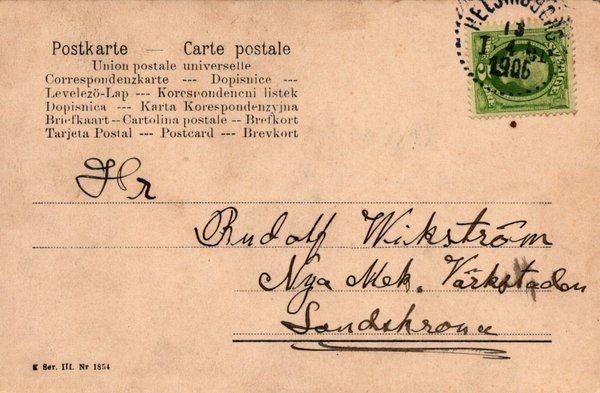 Postkarte — Carte postale
Union postale universelle
Correspondenzkarte --- Dopisnice ---
Levelezö-Lap --- Korespondencni listek
Dopisnica --- Karta Korespondenzyjna
Briefkaart -- Cartolina postale -- Brefkort
Tarjeta Postal --- Postcard --- Brevkort
HELSINGBORG
13
1906
Hr
Rudolf Wikström
Nya Mek. Värkstaden
Landskrona
K Ser. III. Nr 1854